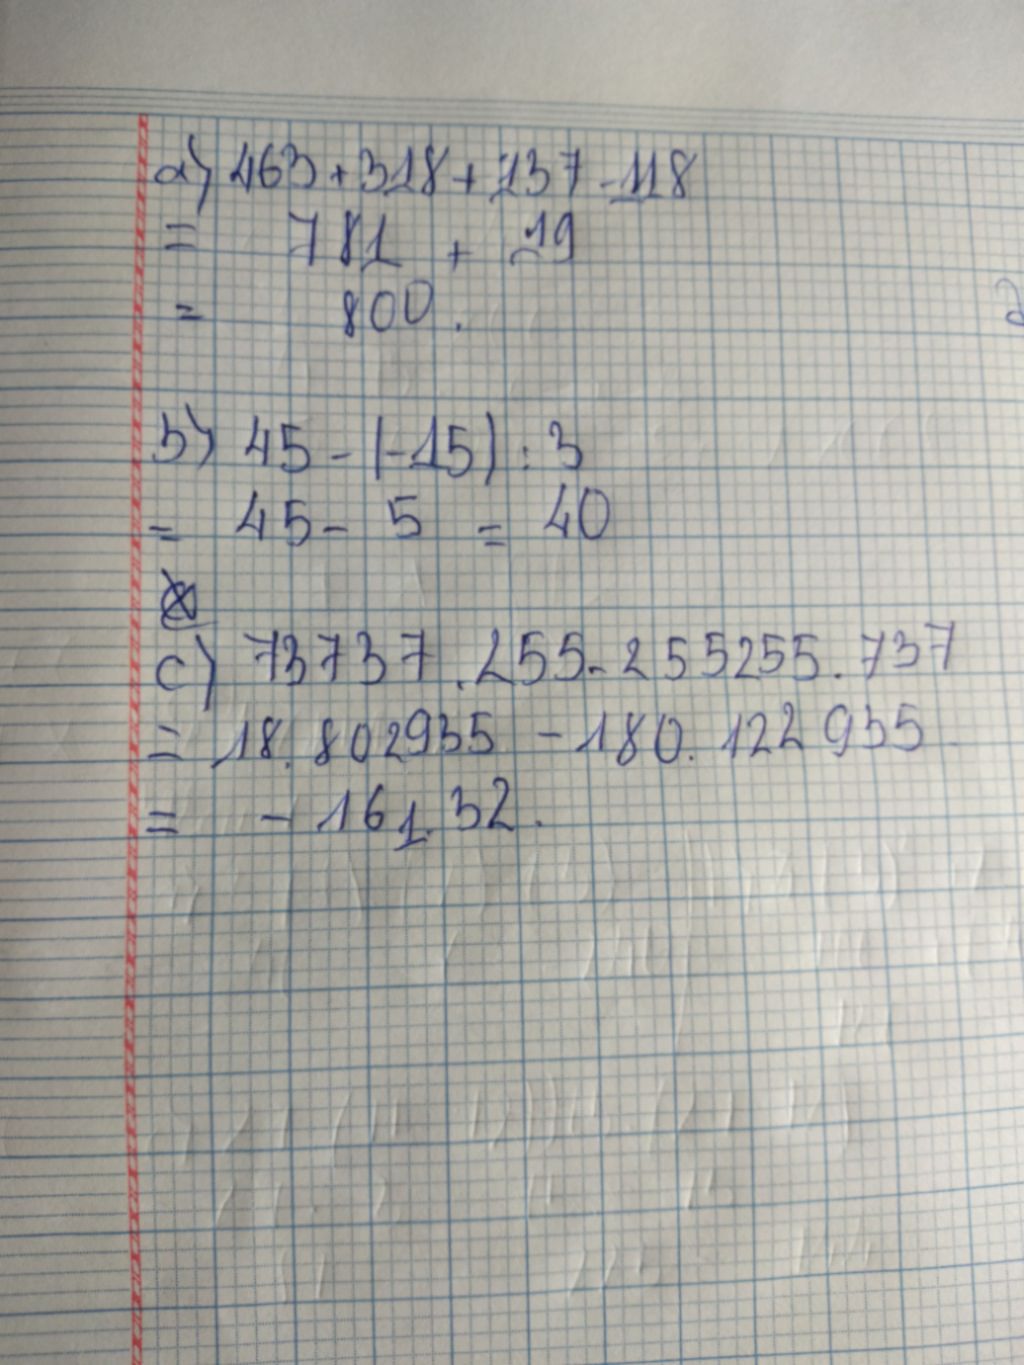 a) 463 + 318 + 137 - 118
= 781 + 19
= 800.
b) 45 - (-15) : 3
= 45 - 5 = 40
c) 73737 . 255 - 255255 . 737
= 18.802935 - 180.122935
= - 161.32.